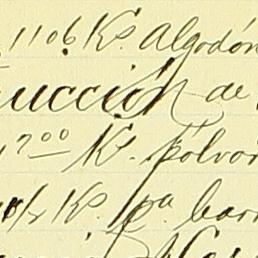 1106 Ks. Algodón
ucción de
700 Ks. polvor
Ks. pa. barr